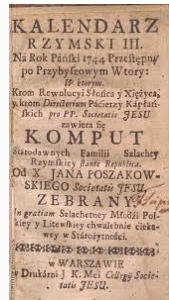 KALENDARZ
RZYMSKI III.
Na Rok Pański 1744. Przestępny
po Przybyszowym Wtory:
IV. ktorym.
Krom Rewolucyi Słońca y Xiężyca,
y krom Directorium Pacierzy Kapłań-
skich pro PP. Societatis JESU
zawiera się
KOMPUT
Starodawnych Familii Szlachty
Rzymskiey stante Republica.
Od X. JANA POSZAKOW-
SKIEGO Societatis JESU,
ZEBRANY
In gratiam Szlachetney Młodzi Pol-
skiey y Litewskiey chwalebnie cieka-
wey w Starożytności.
w WARSZAWIE
w Drukarni J. K. Mci Collegij Socie-
tatis JESU.